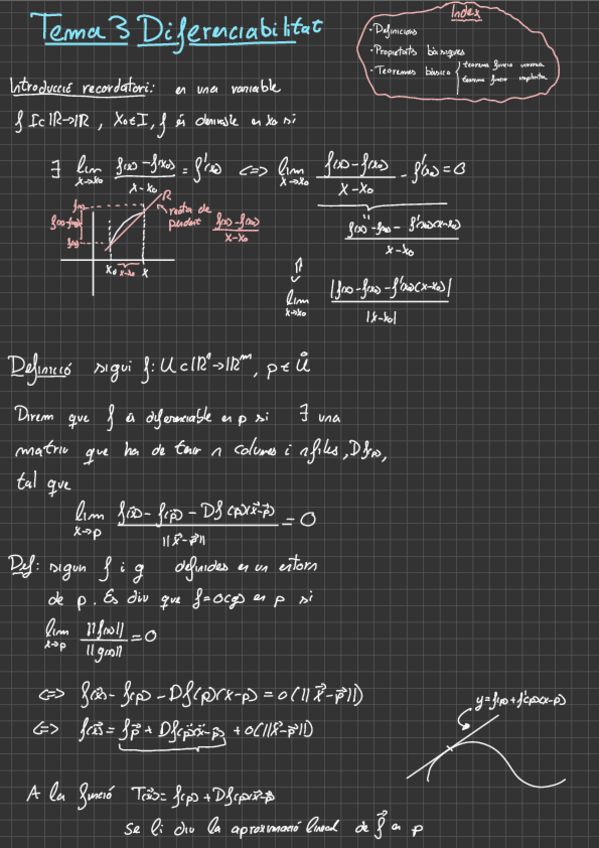 Tema 3 Diferenciabilitat
Index
· Definicions
· Propietats bàsiques
· Teoremes bàsics { teorema funció inversa
teorema funció implícita
Introducció recordatori: en una variable
f I⊂ℝ→ℝ, x₀∈I, f és derivable en x₀ si
∃ lim x→x₀ (f(x)-f(x₀))/(x-x₀) = f'(x₀) <=> lim x→x₀ (f(x)-f(x₀))/(x-x₀) - f'(x₀) = 0
R
recta de
pendent (f(x)-f(x₀))/(x-x₀)
f(x)
f(x)-f(x₀)
f(x₀)
x₀ x-x₀ x
"
(f(x)-f(x₀) - f'(x₀)(x-x₀))/(x-x₀)
lim x→x₀ |f(x)-f(x₀)-f'(x₀)(x-x₀)|/|x-x₀|
Definició sigui f: U⊂ℝⁿ→ℝᵐ, p∈Ů
Direm que f és diferenciable en p si ∃ una
matriu que ha de tenir n columnes i n files, Df(p),
tal que
lim x→p (f(x⃗)-f(p⃗)-Df(p)(x⃗-p⃗))/||x⃗-p⃗|| = 0
Def: siguin f i g definides en un entorn
de p. Es diu que f=o(g) en p si
lim x→p ||f(x)||/||g(x)|| = 0
<=> f(x⃗)-f(p)-Df(p)(x-p) = o(||x⃗-p⃗||)
<=> f(x⃗)= f(p⃗) + Df(p⃗)(x⃗-p) + o(||x⃗-p⃗||)
y=f(p)+f'(p)(x-p)
A la funció T(x⃗)= f(p) + Df(p)(x⃗-p)
se li diu la aproximació lineal de f⃗ en p